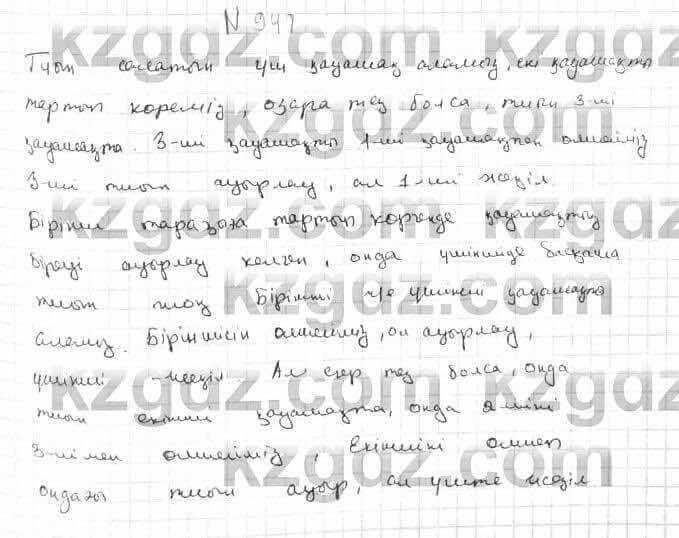 N 947
Тиын салатын үш қауашақ аламыз, екі қауашақты
тартып көреміз, өзара тең болса, тиын 3-ші
қауашақта. 3-ші қауашақты 1-ші қауашақпен өлшейміз
3-ші тиын ауырлау, ал 1-ші жеңіл.
Бірінші таразыға тартып көргенде қауашақтың
біреуі ауырлау келген, онда үшіншіде басқаша
тиын жоқ Бірінші үшінші қауашақта
аламыз. Біріншісін өлшейміз, ол ауырлау,
үшінші - жеңіл Ал егер тең болса, онда
тиын екінші қауашақта, онда 2 шіні
3-шімен өлшейміз, Екіншіні өлшеп
ондағы тиын ауыр, ал үште жеңіл
kzgdz.com